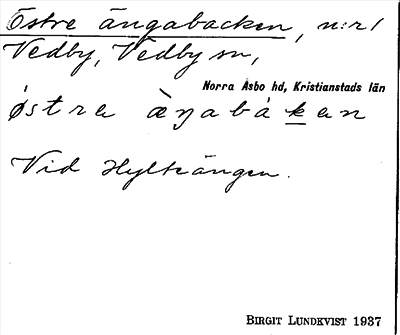 Östre ängabacken, n:r 1
Vedby, Vedby sn,
Norra Åsbo hd, Kristianstads län
östra æ̀ŋabákan
Vid Hylteängen.
BIRGIT LUNDKVIST 1937